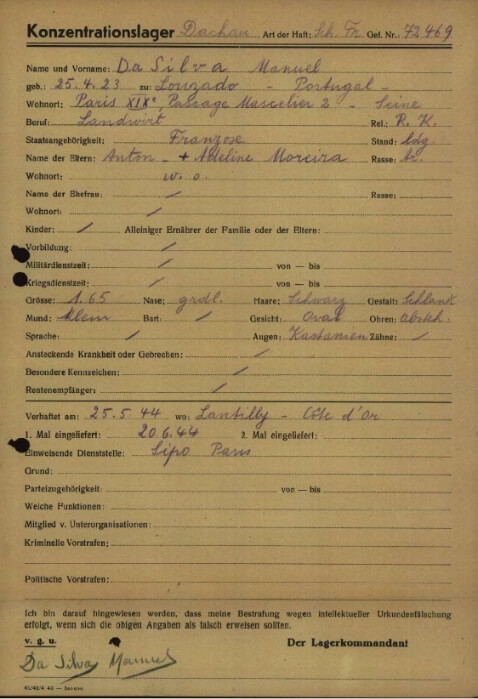 Konzentrationslager Dachau Art der Haft: Sch. Fr. Gef. Nr.: 72469
Name und Vorname: Da Silva Manuel
geb.: 25.4.23 zu: Louzado - Portugal -
Wohnort: Paris XIXe, Passage Mascelier 2 - Seine
Beruf: Landwirt Rel.: R. K.
Staatsangehörigkeit: Franzose Stand: ldg.
Name der Eltern: Anton - + Adeline Moreira Rasse: ar.
Wohnort: w. o.
Name der Ehefrau: / Rasse:
Wohnort: /
Kinder: / Alleiniger Ernährer der Familie oder der Eltern: /
Vorbildung: /
Militärdienstzeit: / von — bis
Kriegsdienstzeit: / von — bis
Grösse: 1.65 Nase: grdl. Haare: Schwarz Gestalt: Schlank
Mund: klein Bart: / Gesicht: Oval Ohren: absth.
Sprache: / Augen: Kastanien Zähne: /
Ansteckende Krankheit oder Gebrechen: /
Besondere Kennzeichen: /
Rentenempfänger: /
Verhaftet am: 25.5.44 wo: Lantilly - Côte d'or
1. Mal eingeliefert: 20.6.44 2. Mal eingeliefert:
Einweisende Dienststelle: Sipo Paris
Grund:
Parteizugehörigkeit: von — bis
Welche Funktionen:
Mitglied v. Unterorganisationen:
Kriminelle Vorstrafen:
Politische Vorstrafen:
Ich bin darauf hingewiesen worden, dass meine Bestrafung wegen intellektueller Urkundenfälschung
erfolgt, wenn sich die obigen Angaben als falsch erweisen sollten.
v. g. u. Der Lagerkommandant
Da Silva Manuel